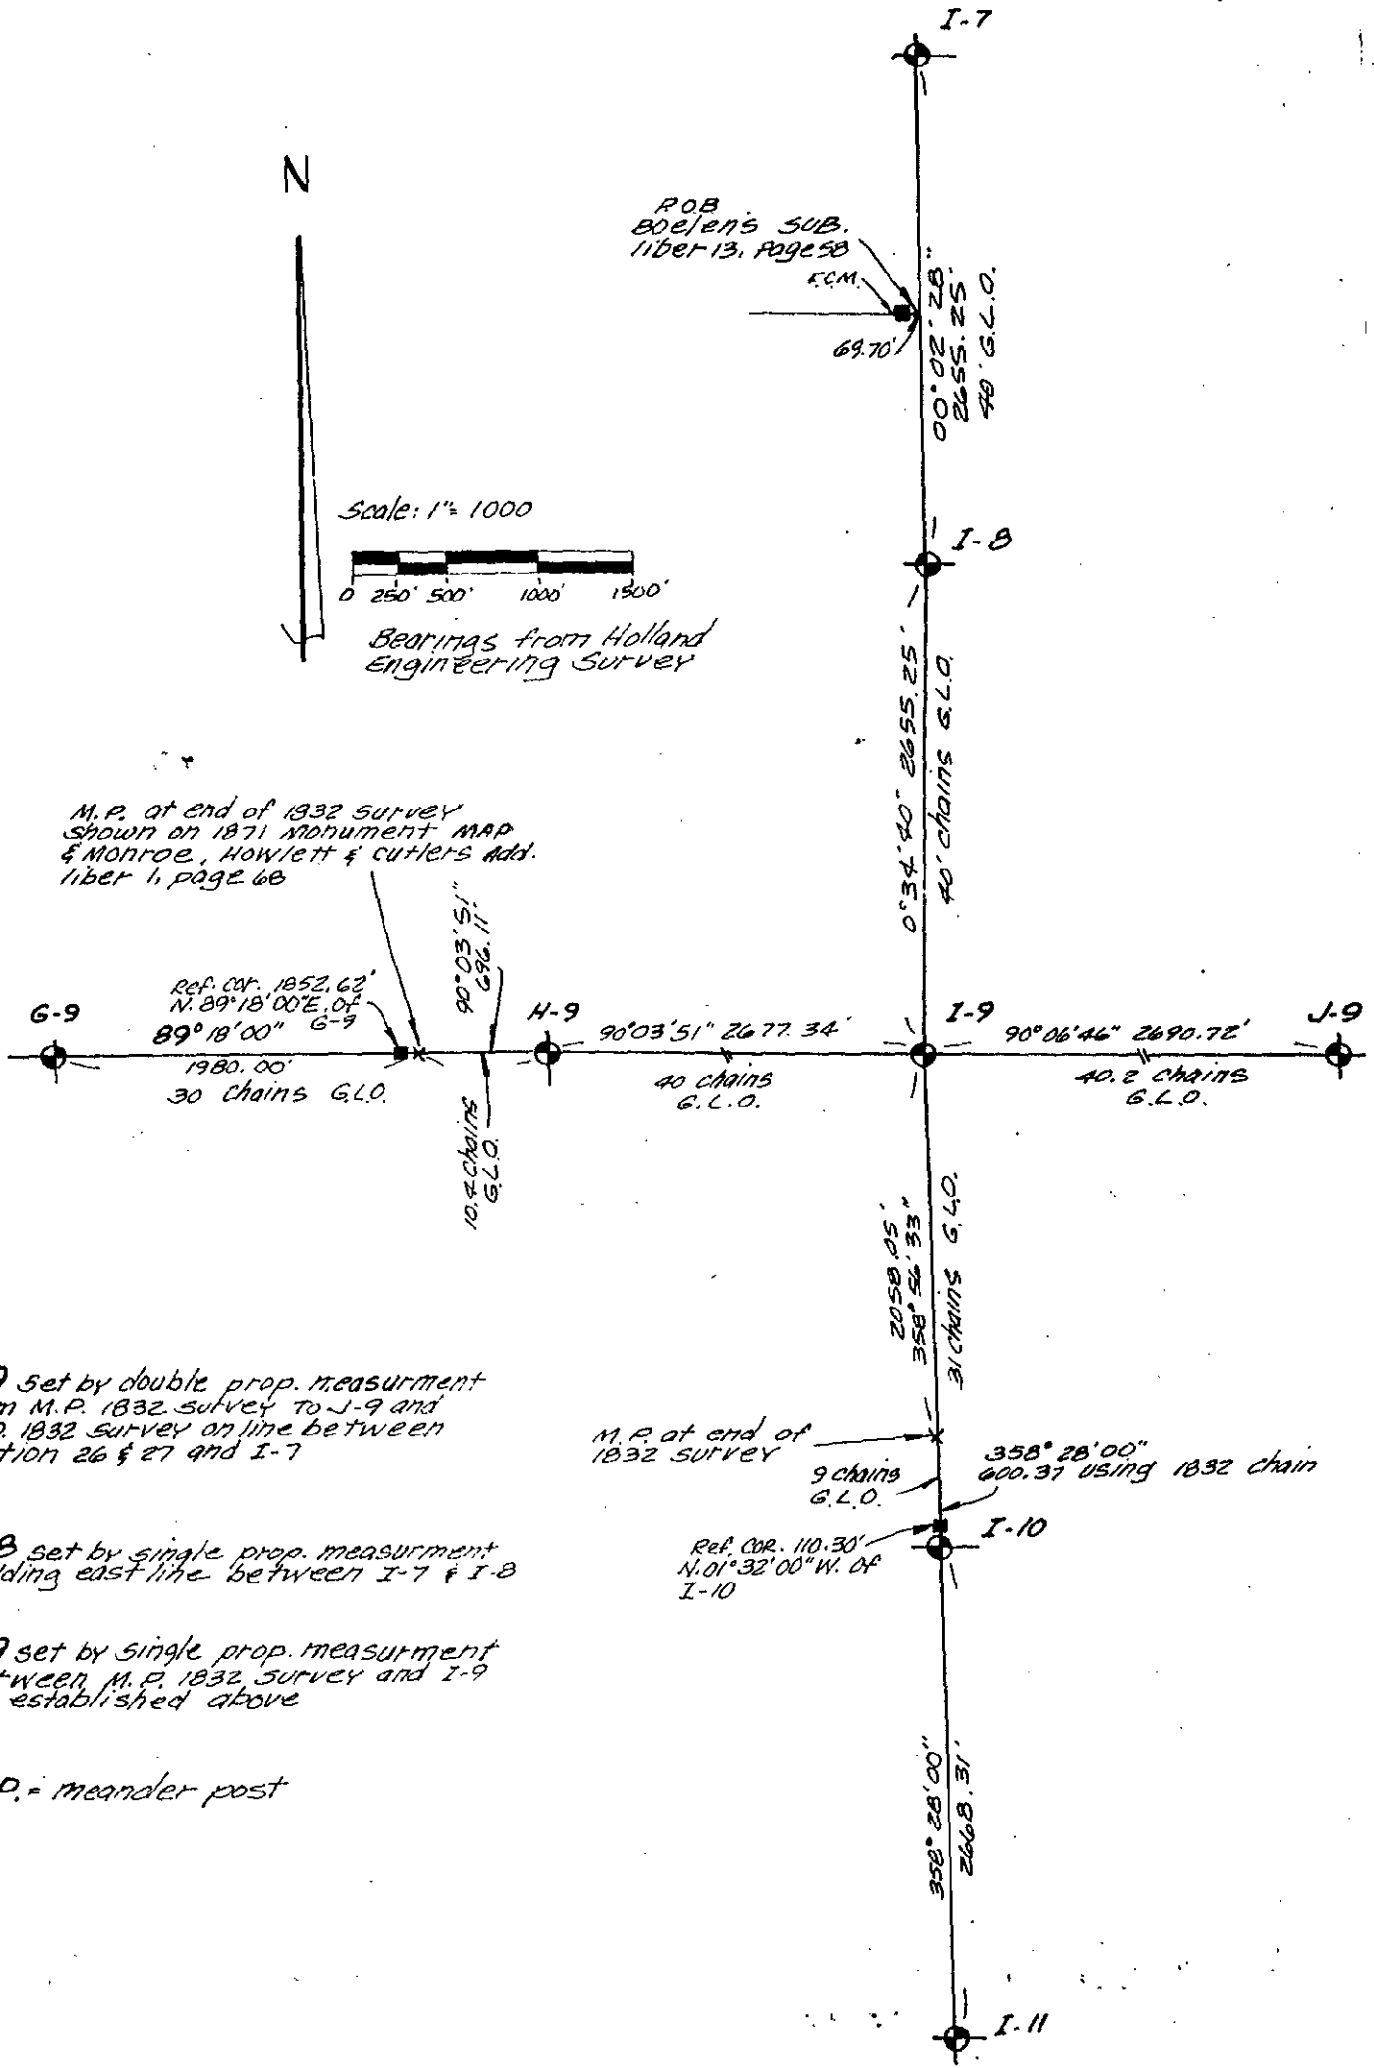 I-7
N
P.O.B.
Boelen's SUB.
liber 13, Page 58
F.C.M.
69.70'
00° 02' 28"
2655.25'
40' G.L.O.
Scale: 1"= 1000
0 250' 500' 1000' 1500'
Bearings from Holland
Engineering Survey
I-8
0° 34' 40" 2655.25'
40' chains G.L.O.
M.P. at end of 1832 survey
shown on 1871 Monument MAP
& Monroe, Howlett & Cutlers Add.
liber 1, page 68
90° 03' 51"
696.11'
Ref. cor. 1852.62'
N. 89° 18' 00" E. of
G-9
G-9
89° 18' 00"
1980.00'
30 chains G.L.O.
H-9
90° 03' 51" 2677.34'
40 chains
G.L.O.
I-9
90° 06' 46" 2690.72'
40.2 chains
G.L.O.
J-9
10.4 chains
G.L.O.
2058.05'
358° 56' 33"
31 chains G.L.O.
9 set by double prop. measurment
m M.P. 1832 survey To J-9 and
P. 1832 survey on line between
tion 26 & 27 and I-7
M.P. at end of
1832 survey
9 chains
G.L.O.
358° 28' 00"
600.37 using 1832 chain
I-10
Ref. COR. 110.30'
N. 01° 32' 00" W. of
I-10
8 set by single prop. measurment
lding east line between I-7 & I-8
9 set by single prop. measurment
tween M.P. 1832 survey and I-9
established above
P. = meander post
358° 28' 00"
2668.31'
I-11